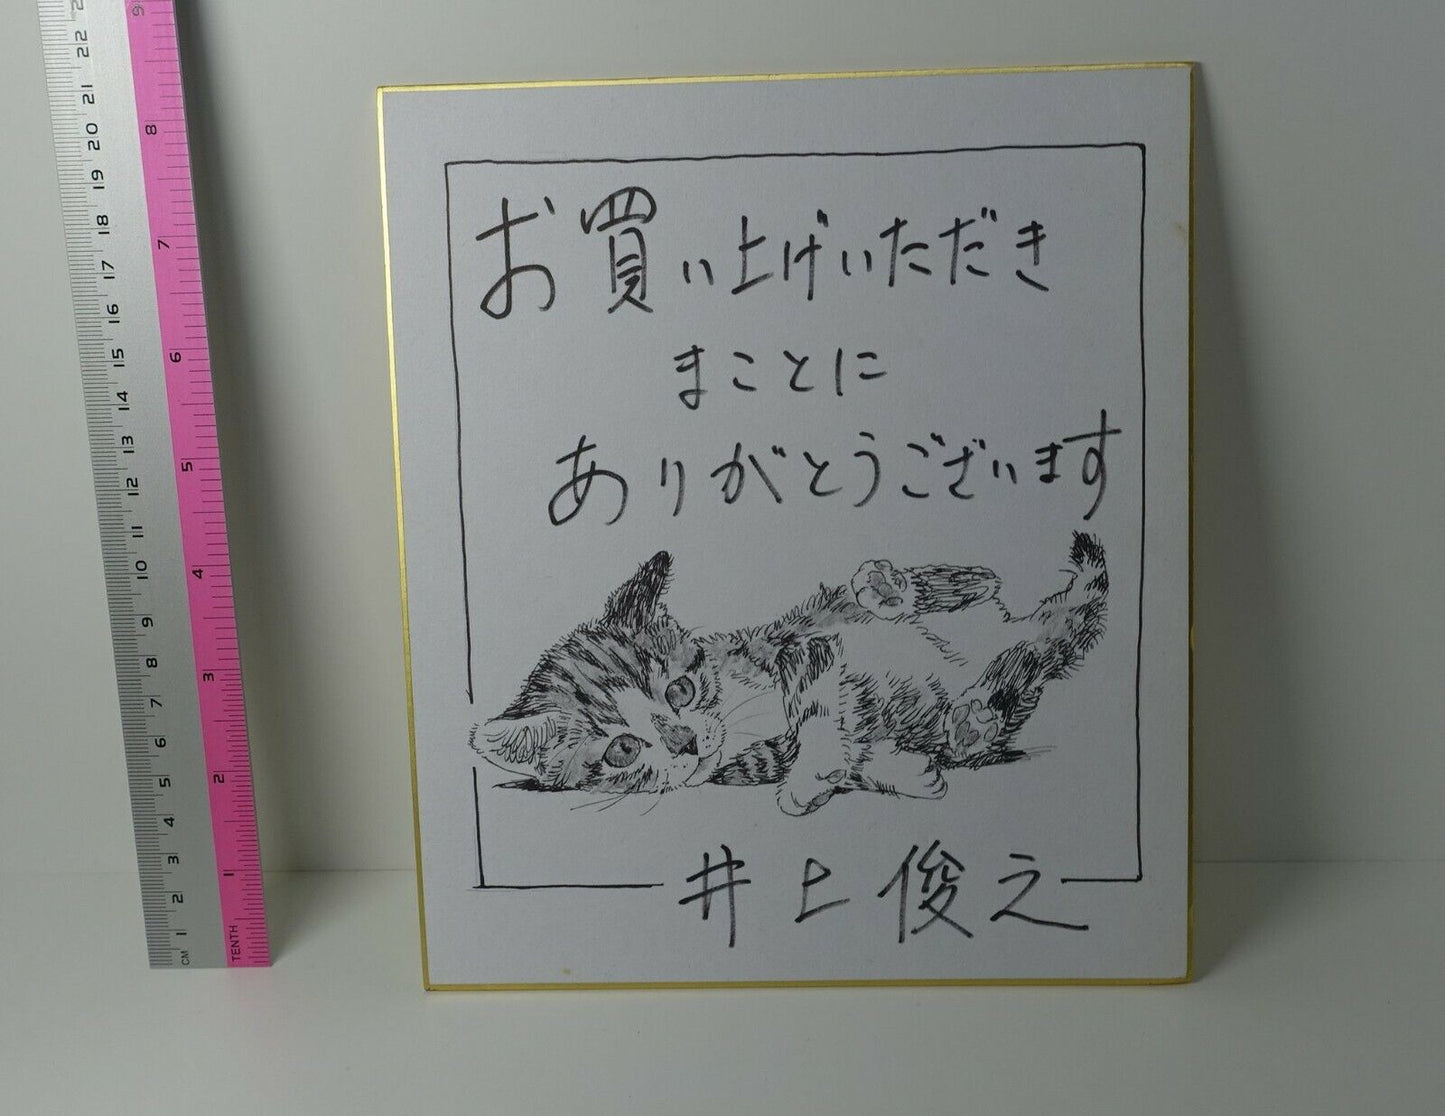 お買い上げいただき
まことに
ありがとうございます
井上俊之
22
21
20
19
18
17
16
15
14
13
12
11
10
9
8
7
6
5
4
3
2
1
CM
9
8
7
6
5
4
3
2
1
TENTH